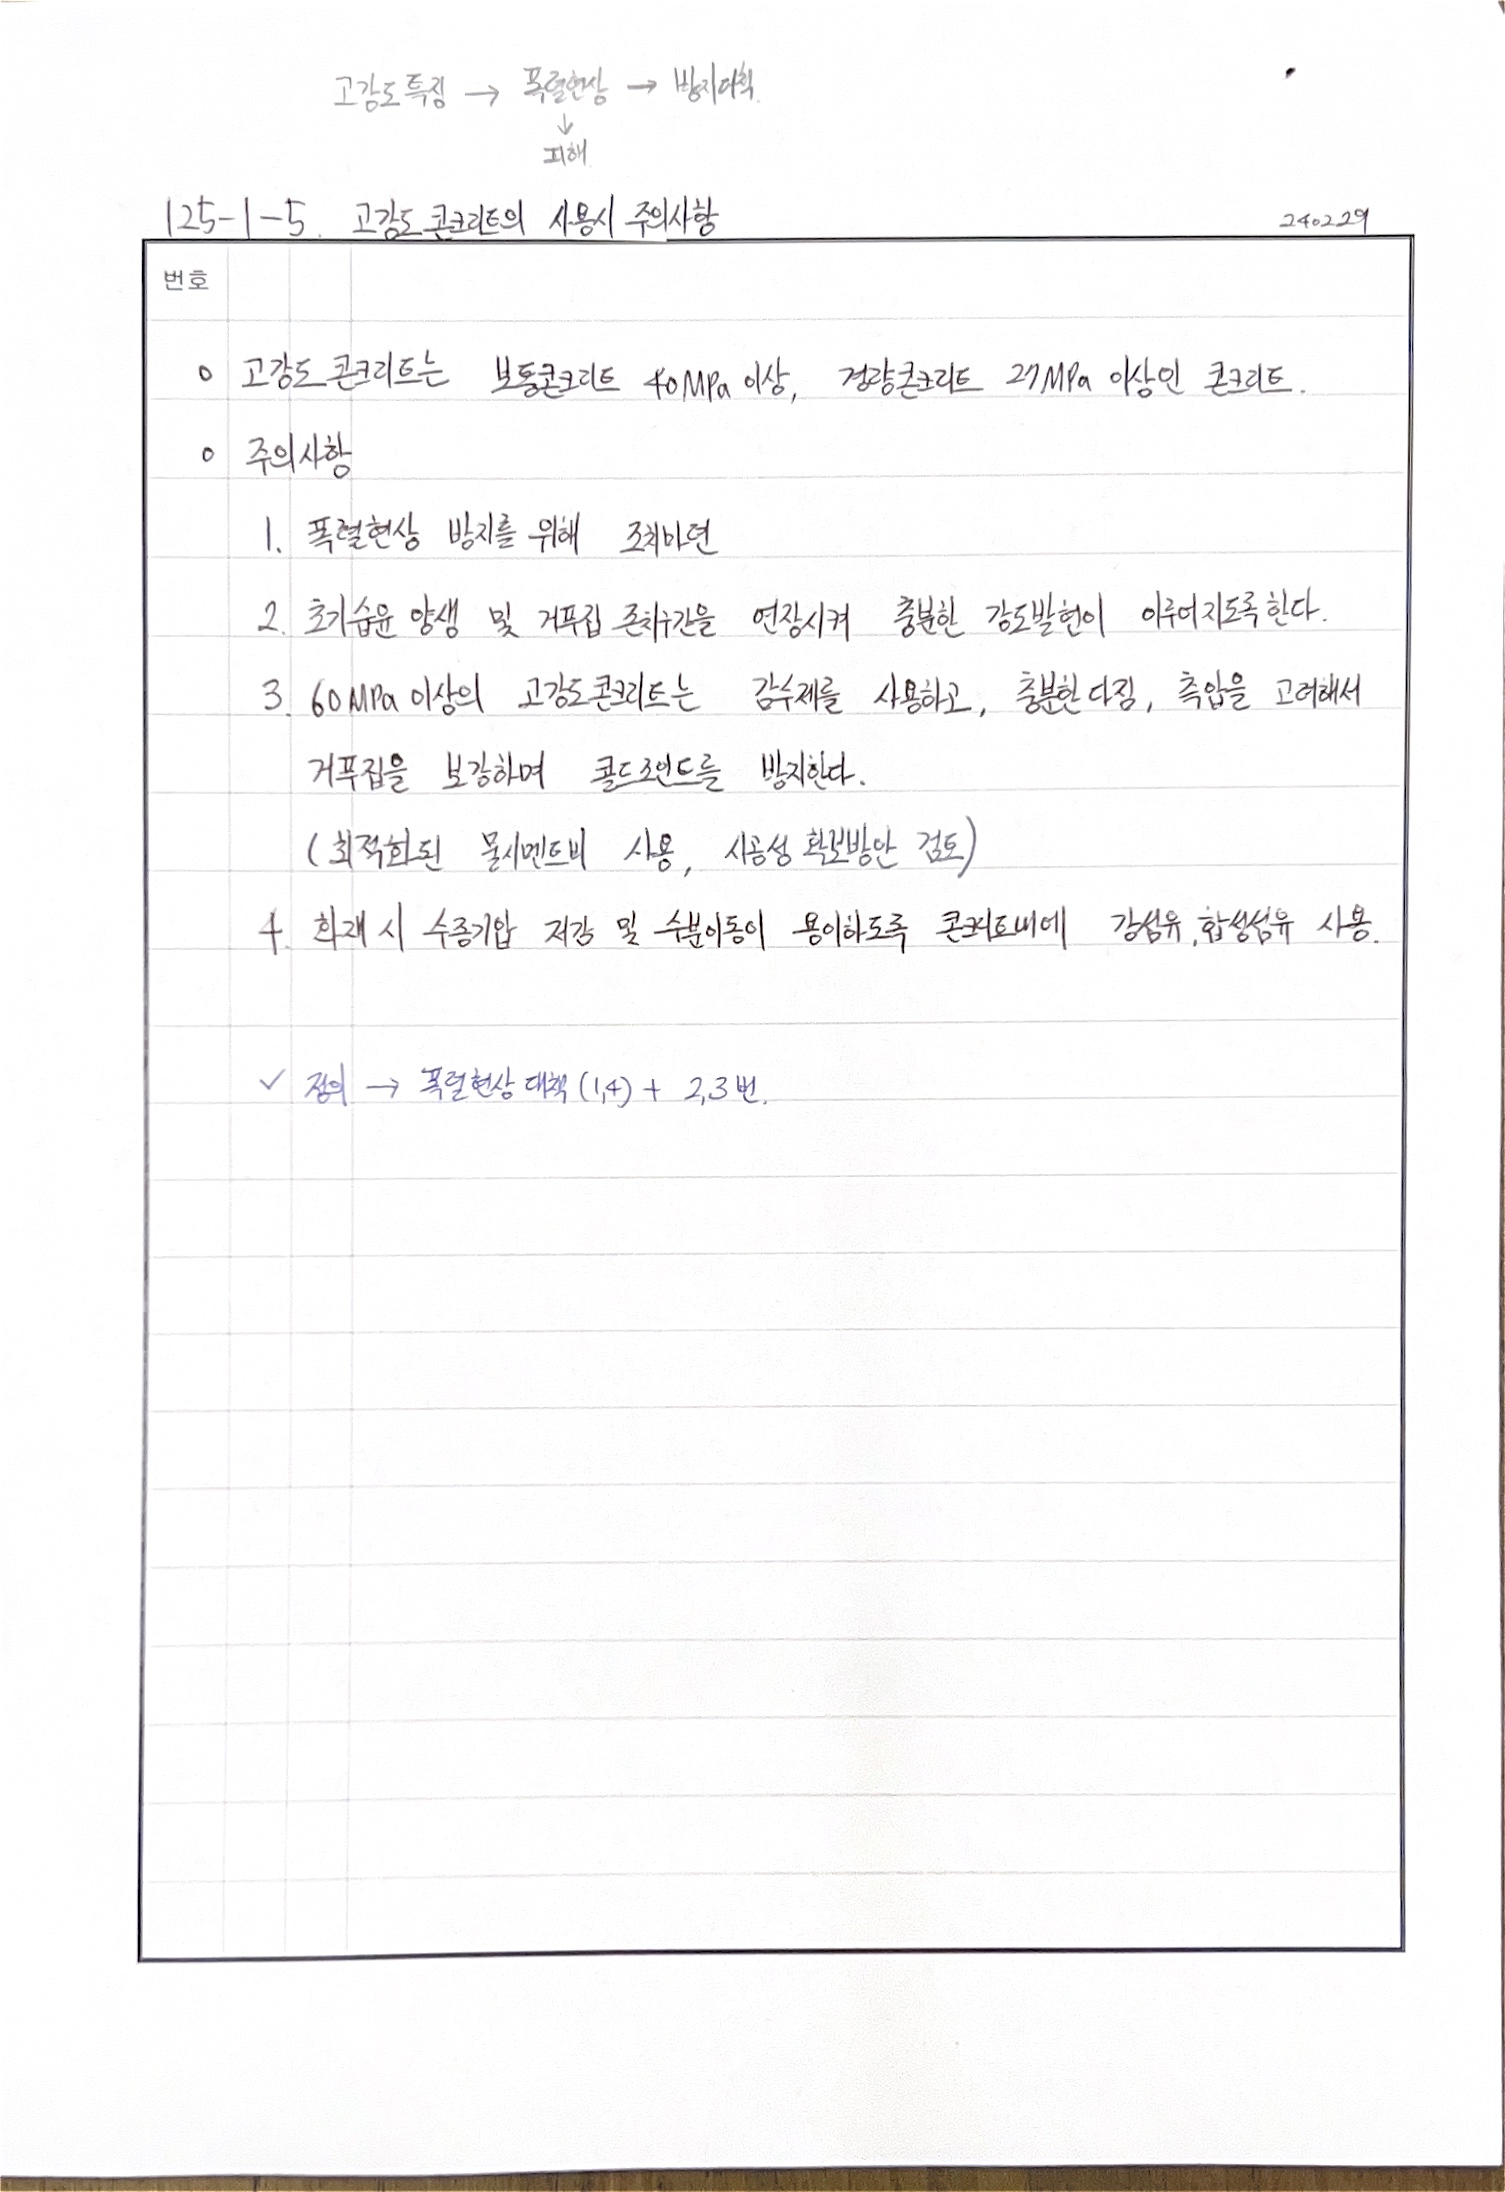 고강도 특징 → 폭렬현상 → 방지대책.
↓
피해
125-1-5. 고강도 콘크리트의 사용시 주의사항
240229
번호
o 고강도 콘크리트는 보통콘크리트 40MPa 이상, 경량콘크리트 27MPa 이상인 콘크리트.
o 주의사항
1. 폭렬현상 방지를 위해 조치마련
2. 초기습윤 양생 및 거푸집 존치시간을 연장시켜 충분한 강도발현이 이루어지도록 한다.
3. 60MPa 이상의 고강도콘크리트는 감수제를 사용하고, 충분한 다짐, 측압을 고려해서
거푸집을 보강하며 콜드조인트를 방지한다.
(최적화된 물시멘트비 사용, 시공성 확보방안 검토)
4. 화재 시 수증기압 저감 및 수분이동이 용이하도록 콘크리트내에 강섬유, 합성섬유 사용.
✓ 정의 → 폭렬현상 대책 (1,4) + 2,3번.